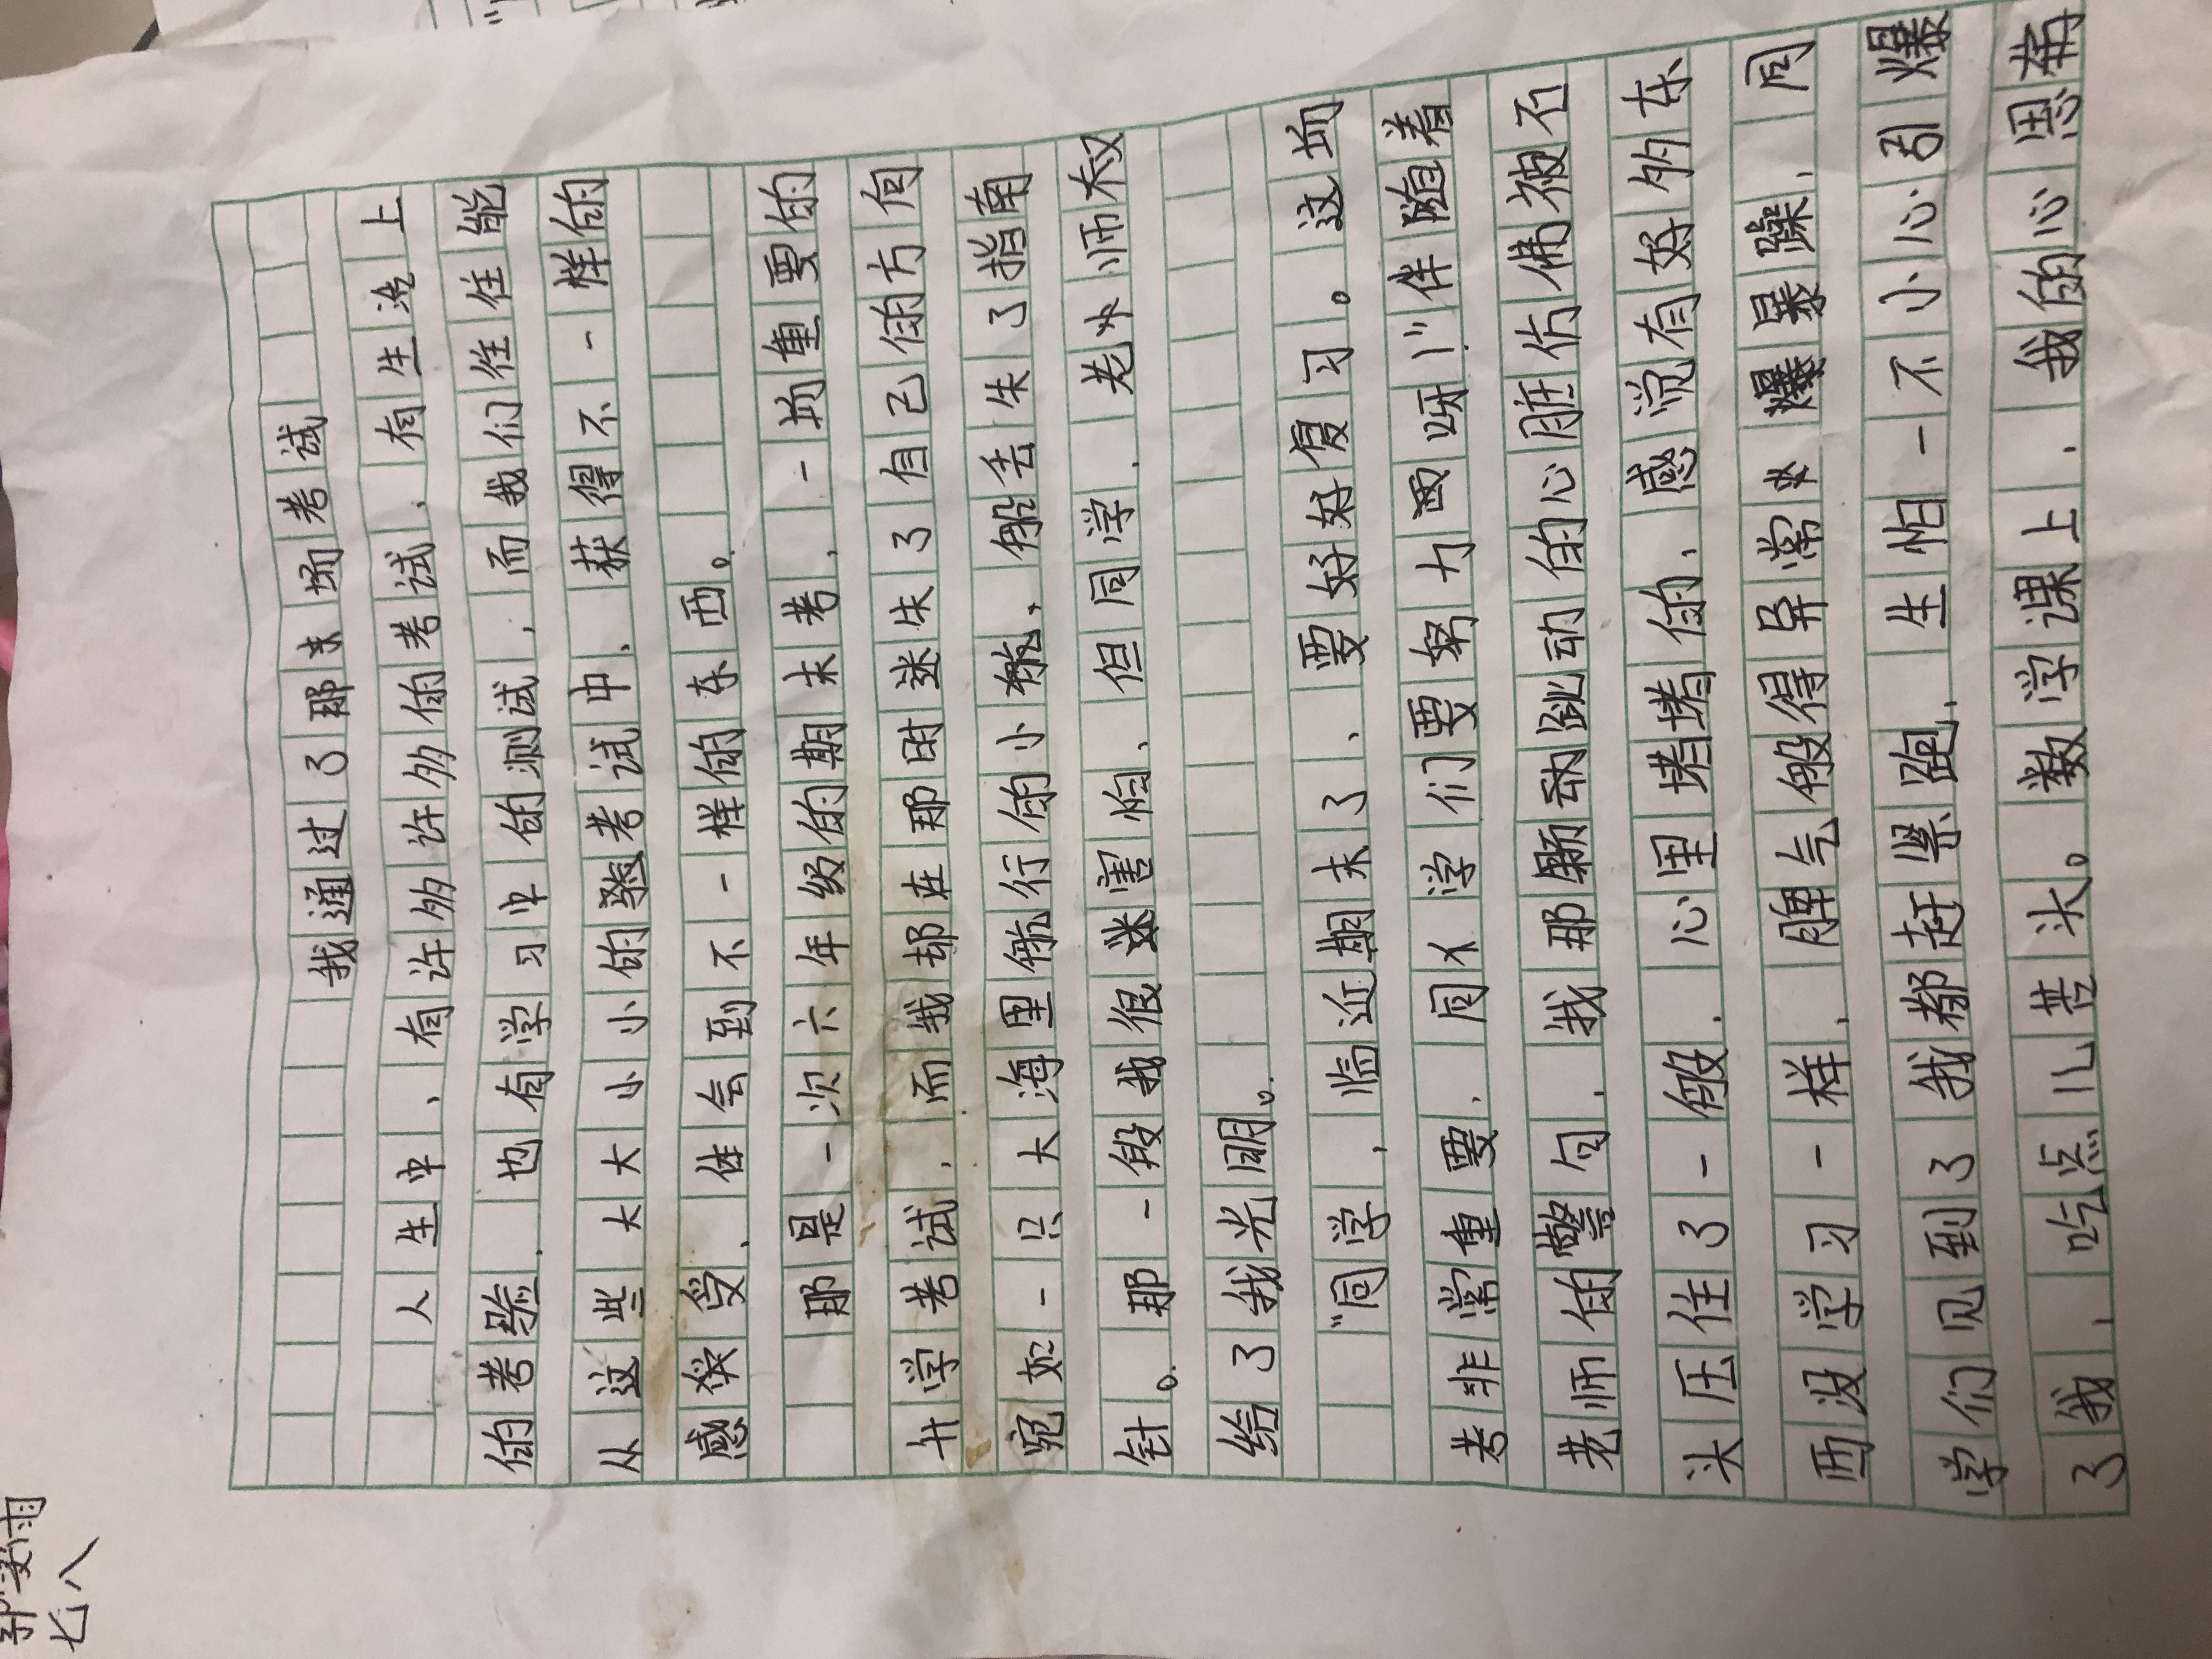 七八
我通过了那末场考试
人生中，有许多许多的考试，有生活上
的考验，也有学习中的测试，而我们往往能
从这些大大小小的验考试中，获得不一样的
感受，体会到不一样的东西。
那是一次六年级的期末考，一场重要的
升学考试，而我却在那时迷失了自己的方向
宛如一只大海里航行的小航，般丢失了指南
针。那一段我很迷害怕，但同学，老师
给了我光明。
"同学，临近期末了，要好好复习。这场
考非常重要，同学们要努力要呀！"伴随着
老师的警句，我那颤动跳动的心脏仿佛被石
头压住了一般，心里堵堵的，感觉有好多东
西没学习一样，脾气般得异常暴躁，同
学们见到了我都赶紧跑，生怕一不小心引爆
了我，吃点儿苦头。数学课上，我的心思带